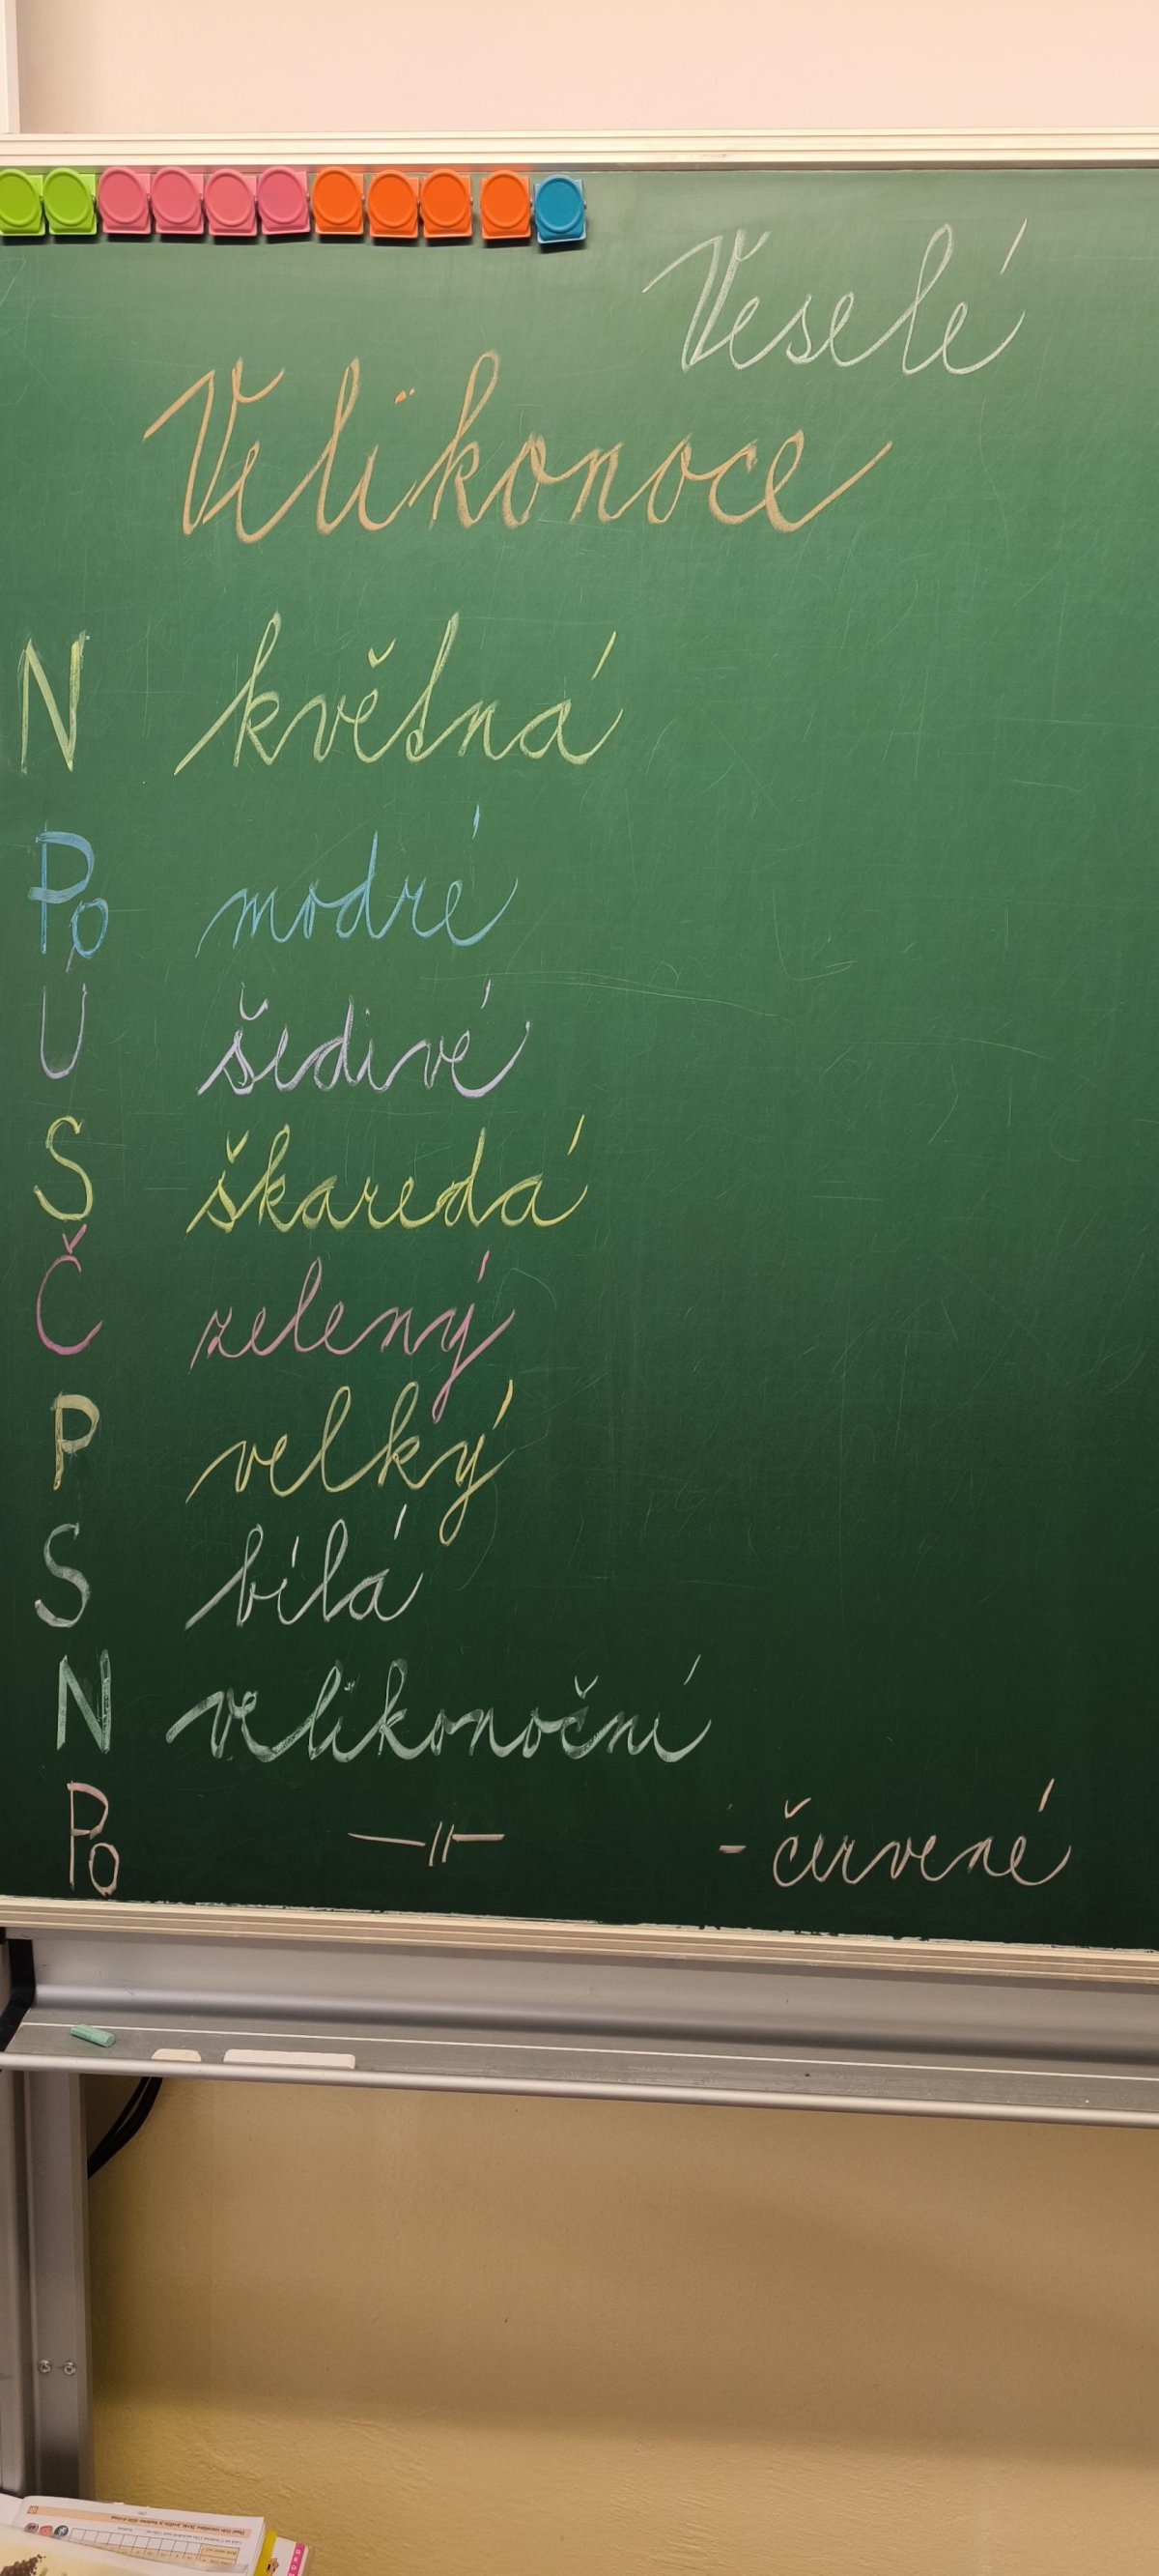 Veselé
Velikonoce
N květná
Po modré
U šedivé
S škaredá
Č zelený
P velký
S bílá
N velikonoční
Po —||— - červené